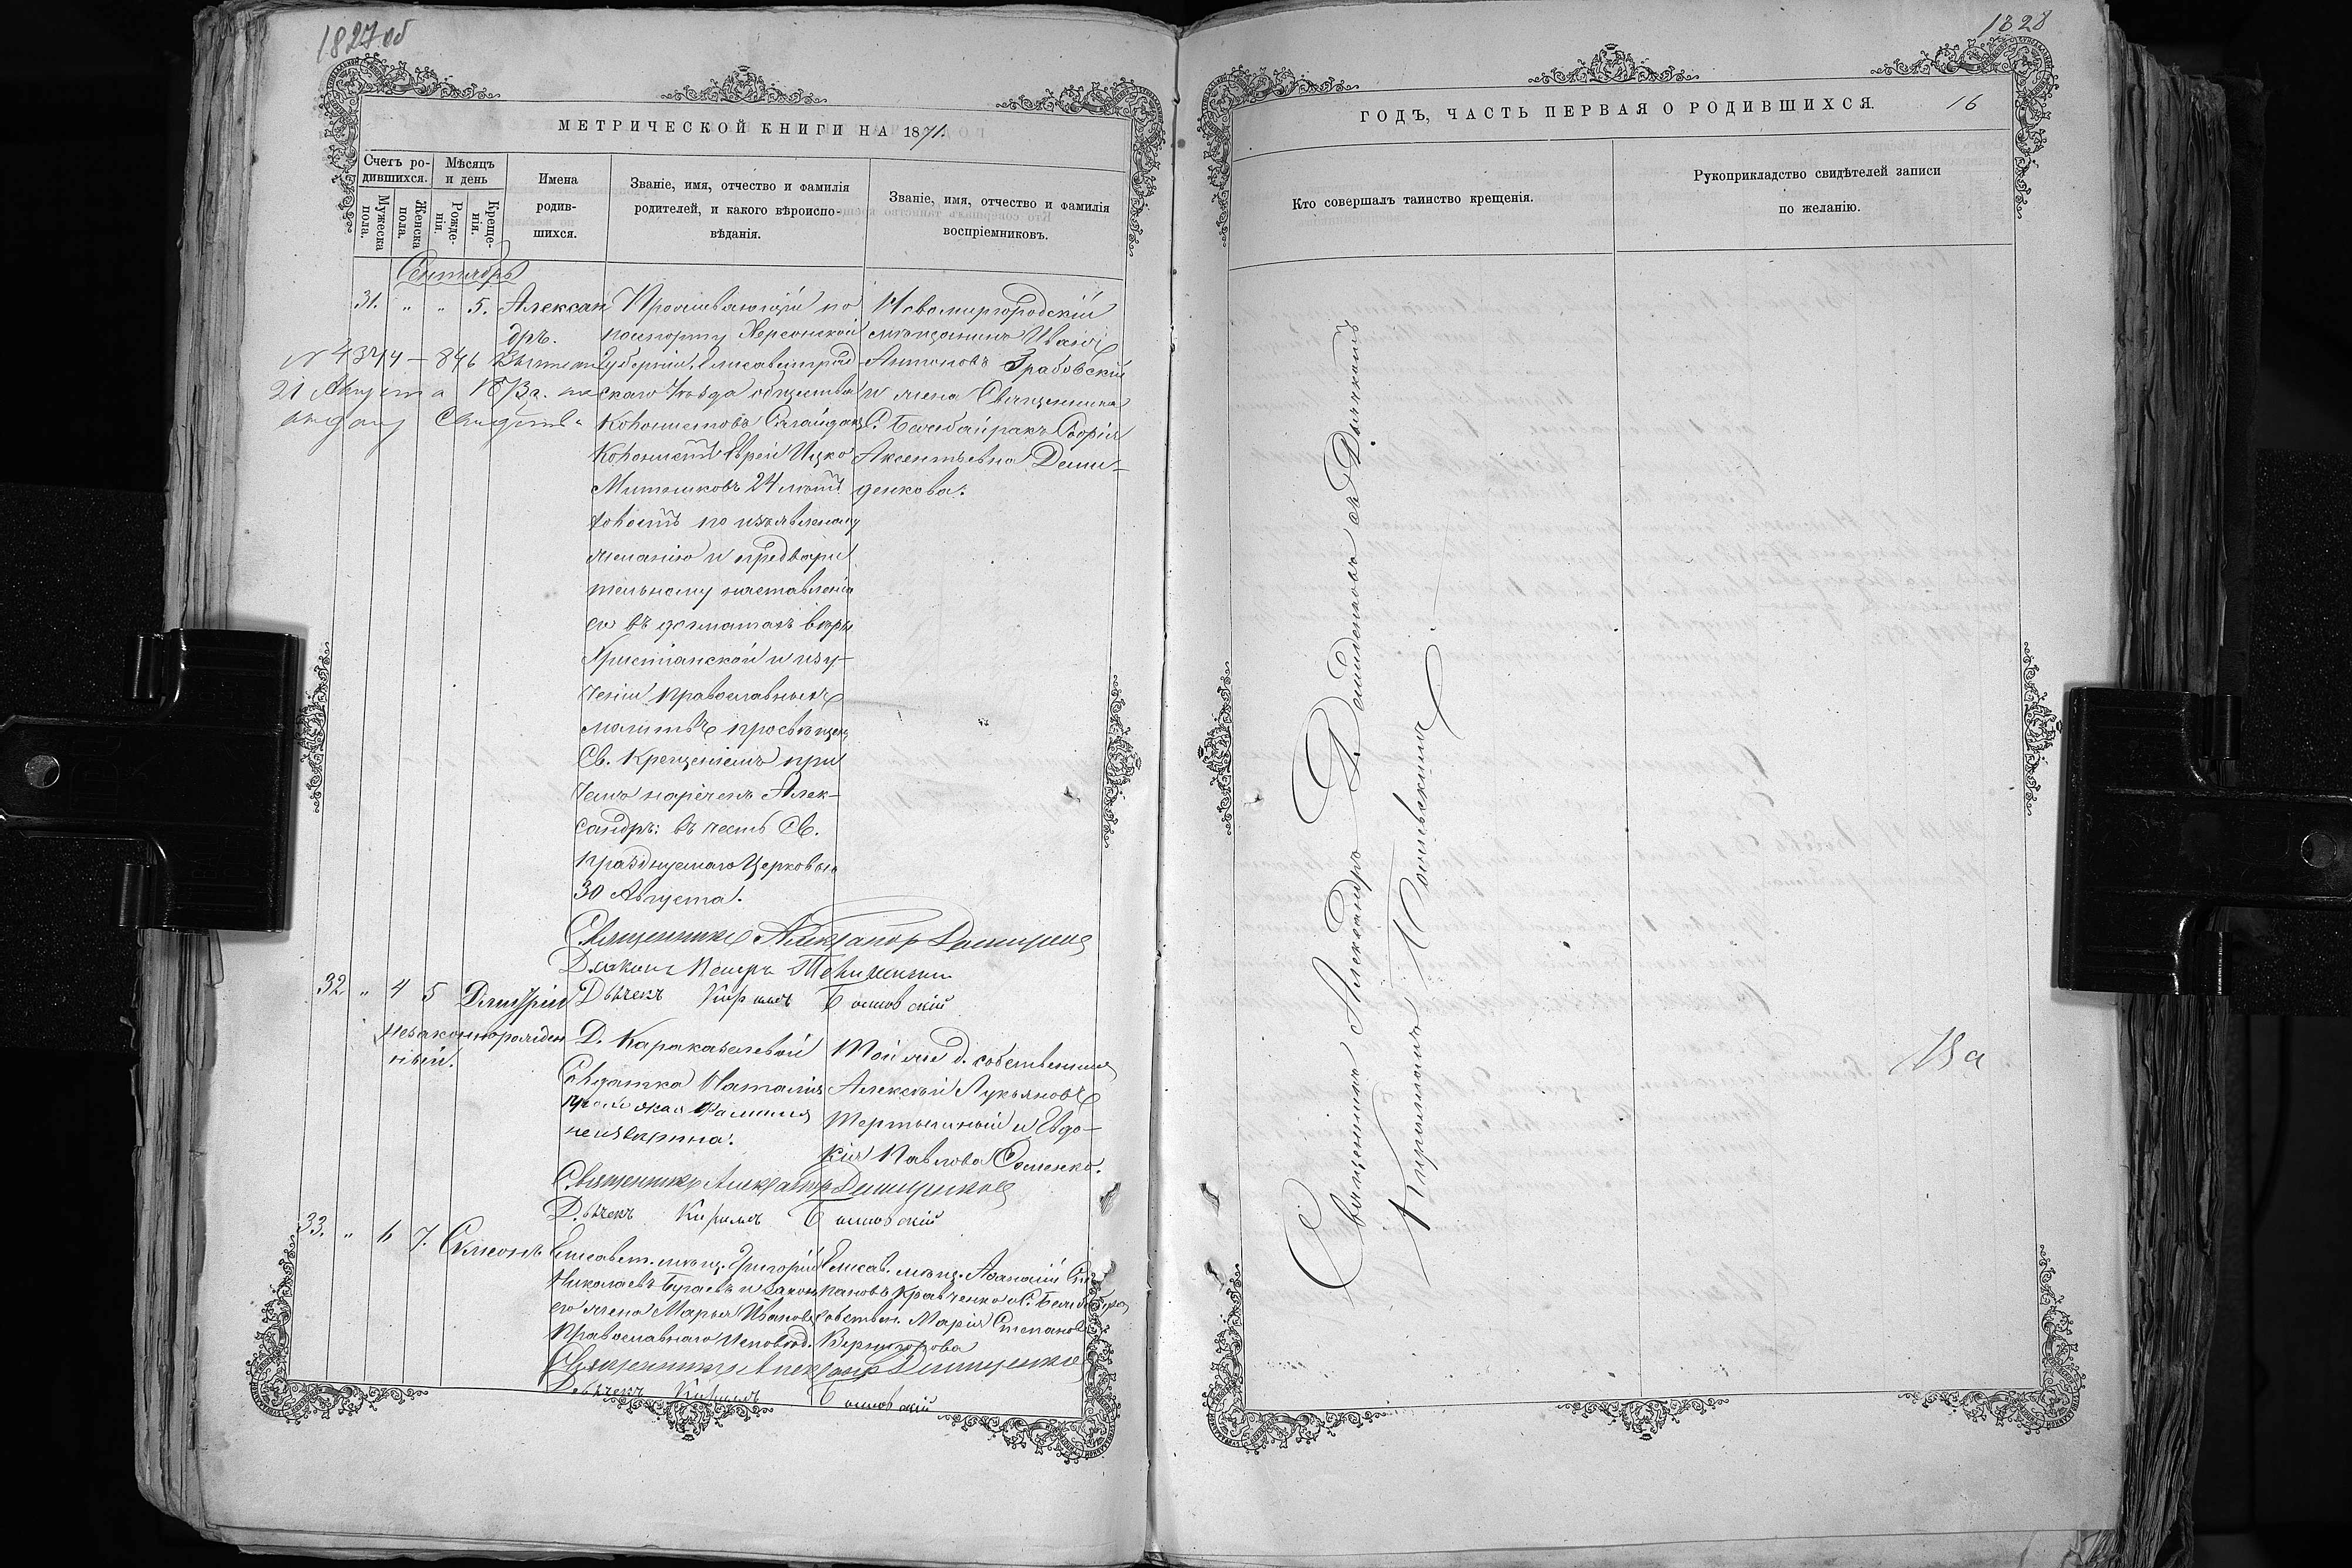 1827 об
МЕТРИЧЕСКОЙ КНИГИ НА 1871.
Счетъ родившихся.
Мужеска пола.
Женска пола.
Мѣсяцъ и день
Рожденія.
Крещенія.
Имена родившихся.
Званіе, имя, отчество и фамилія родителей, и какого вѣроисповѣданія.
Званіе, имя, отчество и фамилія воспріемниковъ.
Сентябрь
31. " " 5. Александръ.
№ 4344 – 846
21 Августа
Проживающій по
паспорту Херсонской
Губерніи, Елисаветград
скаго уѣзда общества
Колонистовъ
Колонистъ Еврей Ицко
24 лѣтъ
по изъявленому
желанію и предвари
тельному наставленію
его въ догматахъ вѣры
Христіанской и изу-
ченіи Православныхъ
молитвъ просвѣщенъ
Св. Крещеніемъ при
чемъ нареченъ Алек-
сандръ: въ честь Св.
празднуемаго Церковью
30 Августа.
Новомиргородскій
мѣщанинъ Иванъ
Антоновъ Грабовскій
и жена Священника
С. Бешбайракъ Софія
Аксентьевна Деми-
денкова.
Священникъ Александръ Демиденко
Діаконъ Петръ
Дьячекъ Кирилъ
32 " 4 5 Димитрій
незаконнорожден
ный.
Д. Караказелевой
Солдатка Наталія
фамилія
неизвѣстна.
Той же д. собственникъ
Алексѣй Лукьяновъ
и Евдо-
кія Павлова
Священникъ Александръ Демиденковъ
Дьячекъ Кирилъ
33. " 6 7. Симеонъ
Елисавет. мѣщ. Григорій
Николаевъ Бугаевъ и закон
его жена Марья Иванова
Православнаго Исповѣд.
Елисав. мѣщ. Афанасій Сте
пановъ Кравченко и С. Бешбайра
собствен. Марія Степанова
Священникъ Александръ Демиденко
Дьячекъ Кирилъ
1828
ГОДЪ, ЧАСТЬ ПЕРВАЯ О РОДИВШИХСЯ. 16
Кто совершалъ таинство крещенія.
Рукоприкладство свидѣтелей записи по желанію.
Священникъ Александръ Д. Демиденковъ съ Дьячкомъ
Кирилломъ